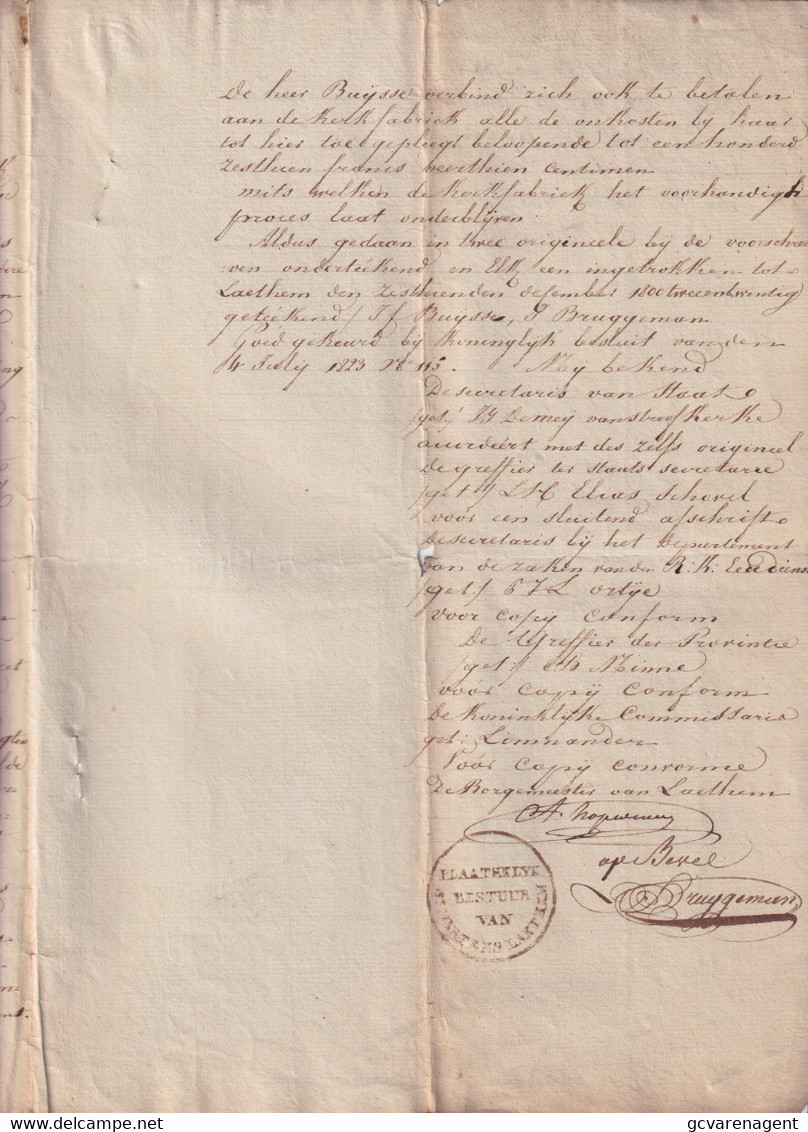 De heer Buijsse verbind zich ook te betalen
aan de kerkfabriek alle de onkosten bij haar
tot hier toe gepleegt beloopende tot een honderd
zesthien francs veerthien centimen
mits welken de kerkfabriek het voorhandigh
proces laat onderblijven.
Aldus gedaan in twee origineele bij de voorschree
ven onderteekend en Elk een ingetrokken tot
Laethem den zesthienden december 1800 tweeentwintig
geteekend / J f Buysse, P Bruggeman
Goed gekeurd bij koninglijk besluit van den
4 July 1823 No 115. Mij bekend
De secretaris van Staat
/get:/ JG Demeij van streefkerke
accordeert met des zelfs origineel
De greffier ter staats secretarie
/get:/ LH Elias Schovel
vóór een sluitend afschrift
De secretaris bij het departement
van de zaken van den R: K: Eeredienst
/get:/ 
voor copij conform
De Greffier der Provintie
/get:/ Minne
vóór copij conform
De Koninklijke Commissaris
get: Limnander
Vóór copij convorme
De Borgemeester van Laethem

op Bevel
Bruggeman
PLAATSELYK
BESTUUR
VAN
gcvarenagent
© www.delcampe.net